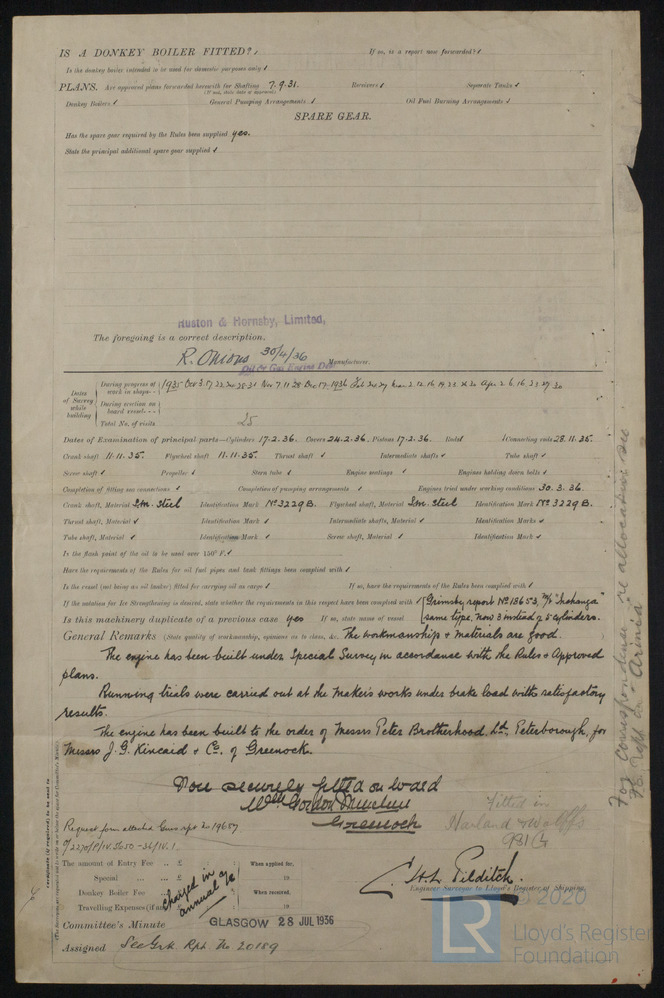 IS A DONKEY BOILER FITTED? If so, is a report now forwarded?
Is the donkey boiler intended to be used for domestic purposes only
PLANS. Are approved plans forwarded herewith for Shafting 7.9.31. Receivers Separate Tanks
(If not, state date of approval)
Donkey Boilers General Pumping Arrangements Oil Fuel Burning Arrangements
SPARE GEAR.
Has the spare gear required by the Rules been supplied yes.
State the principal additional spare gear supplied
Ruston & Hornsby, Limited,
The foregoing is a correct description.
R. Onions 30/4/36
Manufacturer.
Dates of Survey while building
During progress of work in shops - -
During erection on board vessel - - -
Total No. of visits 25
Dates of Examination of principal parts—Cylinders 17.2.36. Covers 24.2.36. Pistons 17.2.36. Rods Connecting rods 28.11.35.
Crank shaft 11.11.35. Flywheel shaft 11.11.35. Thrust shaft Intermediate shafts Tube shaft
Screw shaft Propeller Stern tube Engine seatings Engines holding down bolts
Completion of fitting sea connections Completion of pumping arrangements Engines tried under working conditions 30.3.36.
Crank shaft, Material S.M. Steel Identification Mark No 3229B. Flywheel shaft, Material S.M. Steel Identification Mark No 3229B.
Thrust shaft, Material Identification Mark Intermediate shafts, Material Identification Marks
Tube shaft, Material Identification Mark Screw shaft, Material Identification Mark
Is the flash point of the oil to be used over 150° F.
Have the requirements of the Rules for oil fuel pipes and tank fittings been complied with
Is the vessel (not being an oil tanker) fitted for carrying oil as cargo If so, have the requirements of the Rules been complied with
If the notation for Ice Strengthening is desired, state whether the requirements in this respect have been complied with Grimsby report No 18653, M/V "Inahanga"
Is this machinery duplicate of a previous case yes If so, state name of vessel same type, now 3 instead of 5 cylinders.
General Remarks (State quality of workmanship, opinions as to class, &c. The workmanship & materials are good.
The engine has been built under Special Survey in accordance with the Rules & Approved
plans.
Running trials were carried out at the makers works under brake load with satisfactory
results.
The engine has been built to the order of Messrs Peter Brotherhood, Ltd, Peterborough, for
Messrs J. G. Kincaid & Co. of Greenock.
Now securely fitted on board
Greenock
Fitted in
Harland & Wolff's
981G
Request form attached 19657
The amount of Entry Fee .. £ : : When applied for,
Special ... .. £ : : 19
Donkey Boiler Fee ... £ : : When received,
Travelling Expenses (if any) £ : : 19
charged in a/c annual
C. H. L. Pilditch.
Engineer Surveyor to Lloyd's Register of Shipping.
Committee's Minute GLASGOW 28 JUL 1936
Assigned See Grk Rpt No 20189
For correspondence re allocation see
F.E. Rept on "Arinia"
© 2020
LR
Lloyd's Register
Foundation